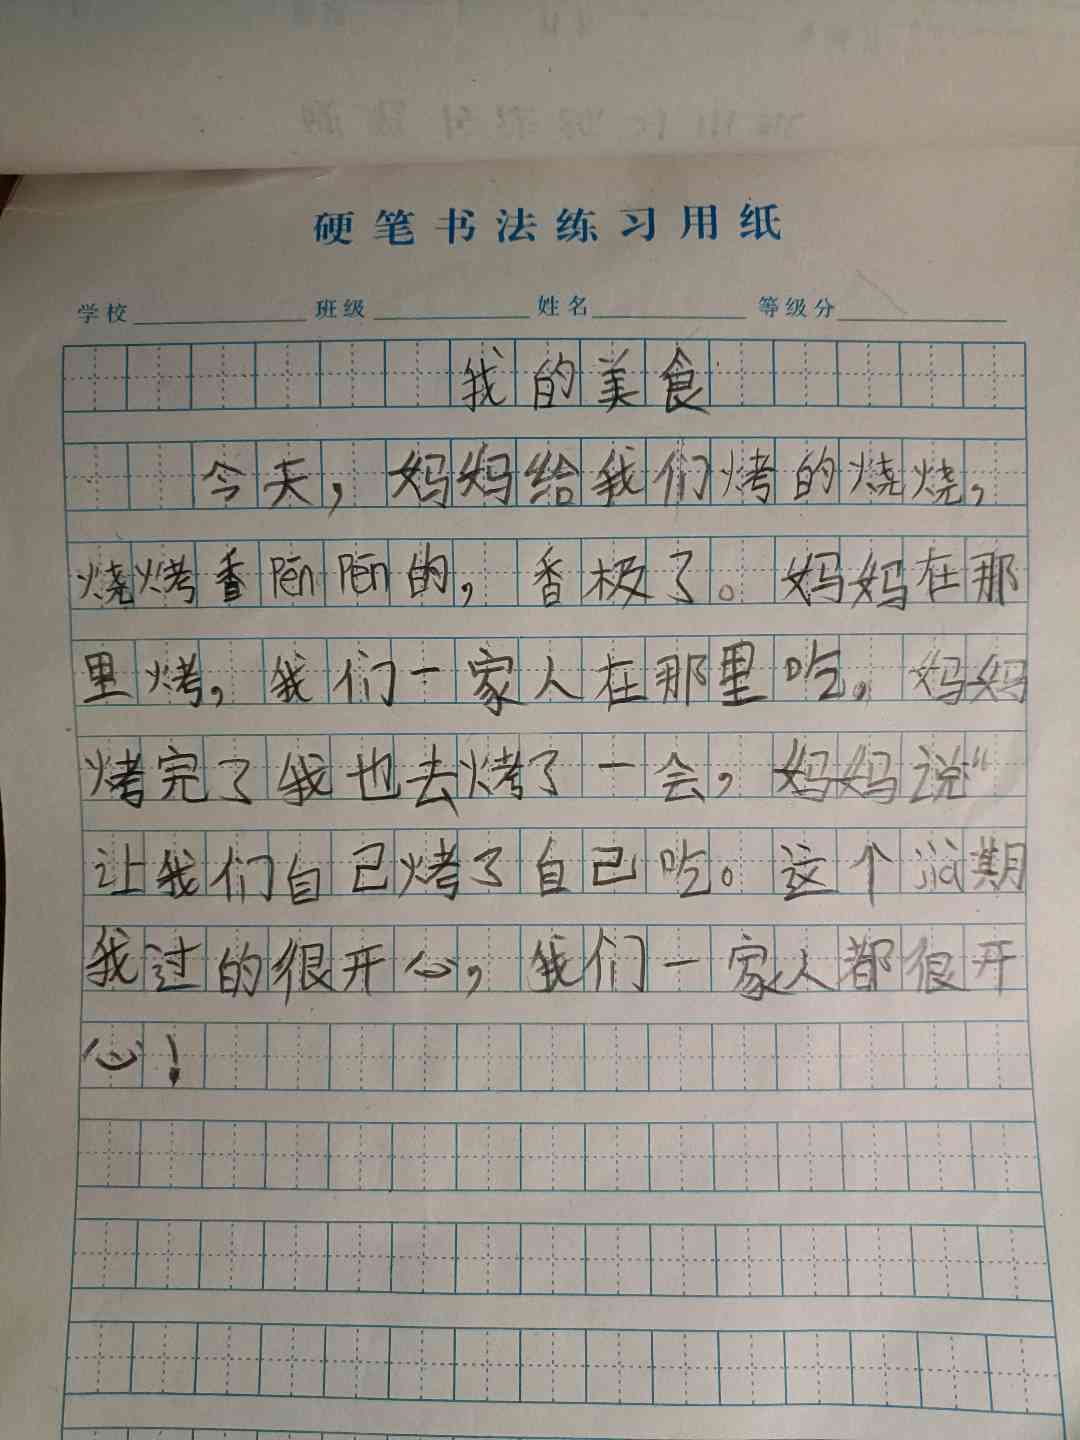 硬笔书法练习用纸
学校 班级 姓名 等级分
我的美食
今天，妈妈给我们烤的烧烧，
烧烤香Pēn Pēn的，香极了。妈妈在那
里烤，我们一家人在那里吃。妈妈
烤完了我也去烤了一会，妈妈说“
让我们自己烤了自己吃。这个jià期
我过的很开心，我们一家人都很开
心！